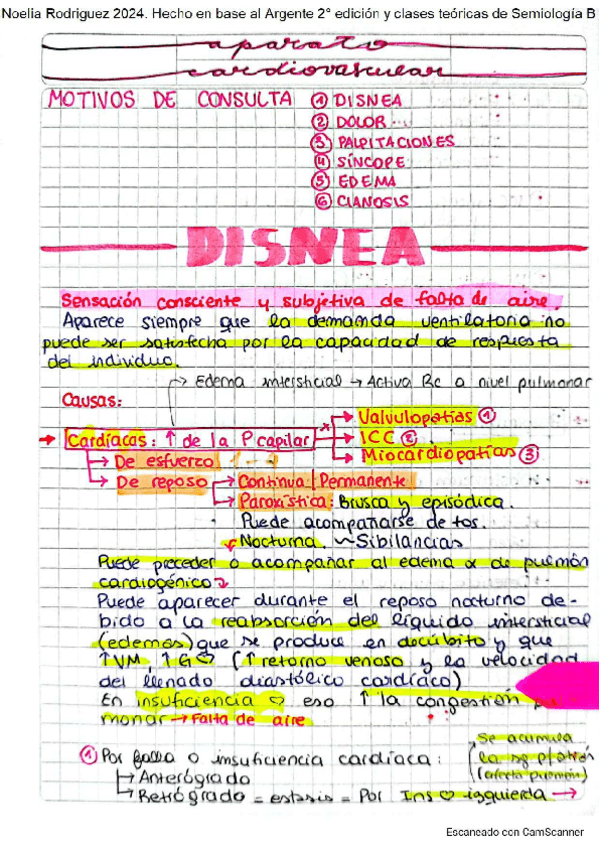 Noelia Rodriguez 2024. Hecho en base al Argente 2° edición y clases teóricas de Semiología B
aparato
cardiovascular
MOTIVOS DE CONSULTA ① DISNEA
② DOLOR
③ PALPITACIONES
④ SÍNCOPE
⑤ EDEMA
⑥ CIANOSIS
DISNEA
Sensación consciente y subjetiva de falta de aire.
Aparece siempre que la demanda ventilatoria no
puede ser satisfecha por la capacidad de respuesta
del individuo.
→ Edema intersticial → Activa Rc a nivel pulmonar
Causas:
→ Cardíacas: ↑ de la P capilar
→ Valvulopatias ①
→ ICC ②
→ Miocardiopatias ③
→ De esfuerzo
→ De reposo → Continua | Permanente
→ Paroxística: Brusca y episódica.
Puede acompañarse de tos.
Nocturna. Sibilancias
Puede preceder o acompañar al edema α de pulmón
cardiogénico
Puede aparecer durante el reposo nocturno de-
bido a la reabsorción del líquido intersticial
(edemas) que se produce en decúbito y que
↑VM, ↑G♡ (↑ retorno venoso y la velocidad
del llenado diastólico cardíaco)
En insuficiencia ♡ eso ↑ la congestión
monar → Falta de aire
① Por falla o insuficiencia cardíaca:
Se acumula
la sg p/atrás
(afecta pulmón)
→ Anterógrado
→ Retrógrado = estasis = Por Ins ♡ izquierda →
Escaneado con CamScanner